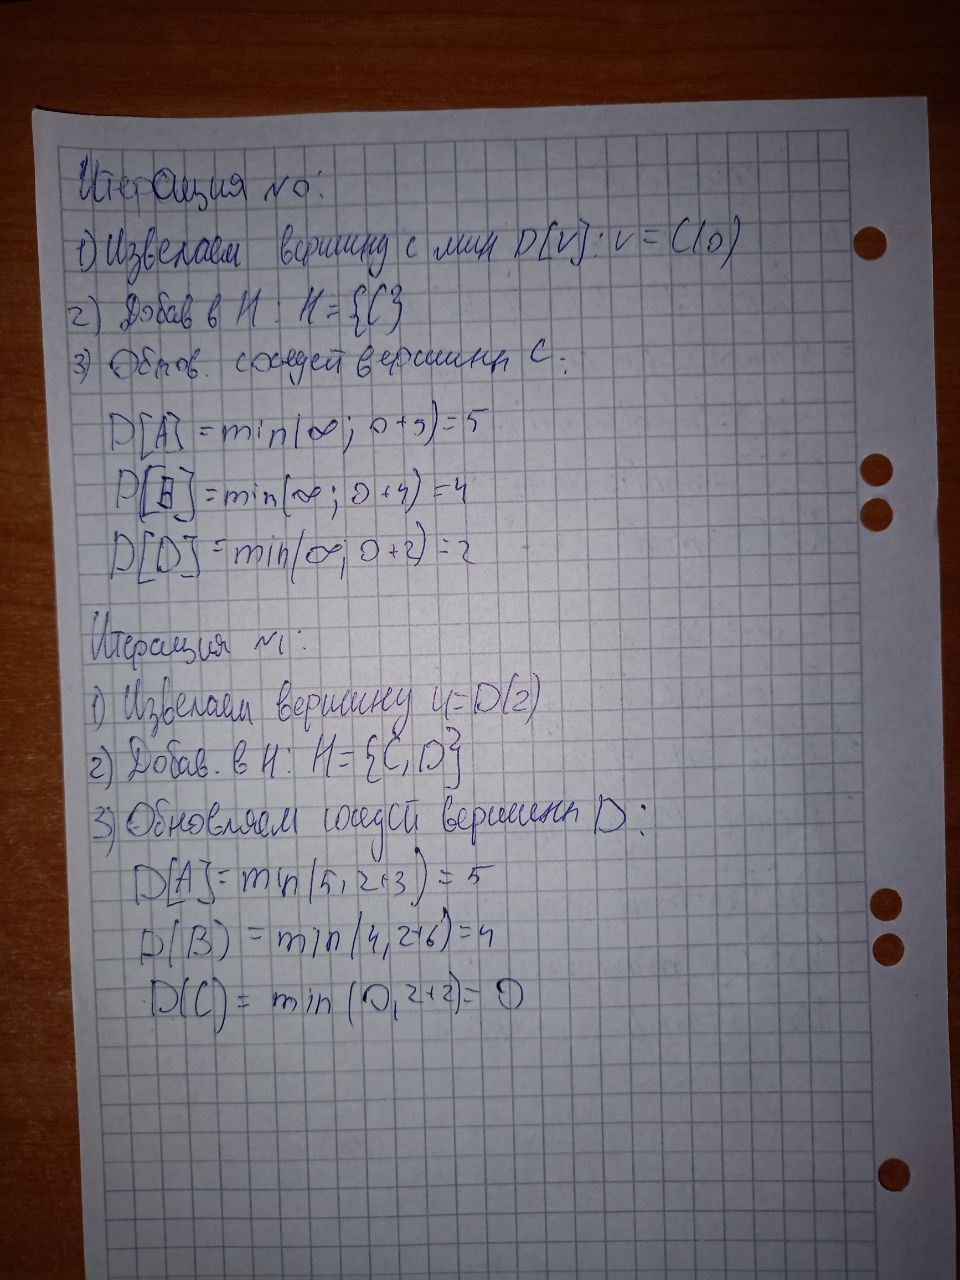 Итерация №0:
1) Извлекаем вершину с мин D[V]: v = C(0)
2) Добав в H : H = {C}
3) Обнов. соседей вершины C:
D[A] = min(∞; 0+5) = 5
D[B] = min(∞; 0+4) = 4
D[D] = min(∞; 0+2) = 2
Итерация №1:
1) Извлекаем вершину u = D(2)
2) Добав. в H: H = {C, D}
3) Обновляем соседей вершины D:
D[A] = min(5, 2+3) = 5
D(B) = min(4, 2+6) = 4
D(C) = min(0, 2+2) = 0